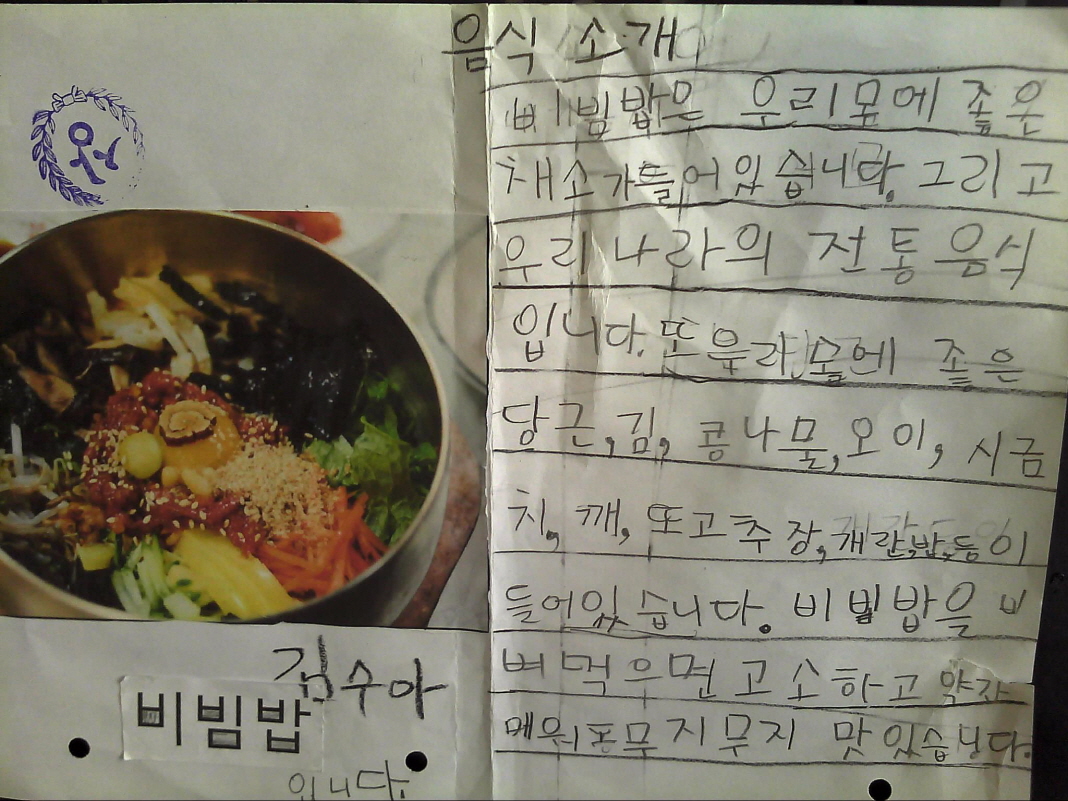 음식 소개
비빔밥은 우리몸에 좋은
채소가들어있습니다. 그리고
우리나라의 전통음식
입니다. 또 우리 몸에 좋은
당근, 김, 콩나물, 오이, 시금
치, 깨, 또고추장, 계란, 밥, 등이
들어있습니다. 비빔밥을 비
벼 먹으면 고소하고 약간
메워도무지무지 맛있습니다.
김수아
비빔밥
입니다.